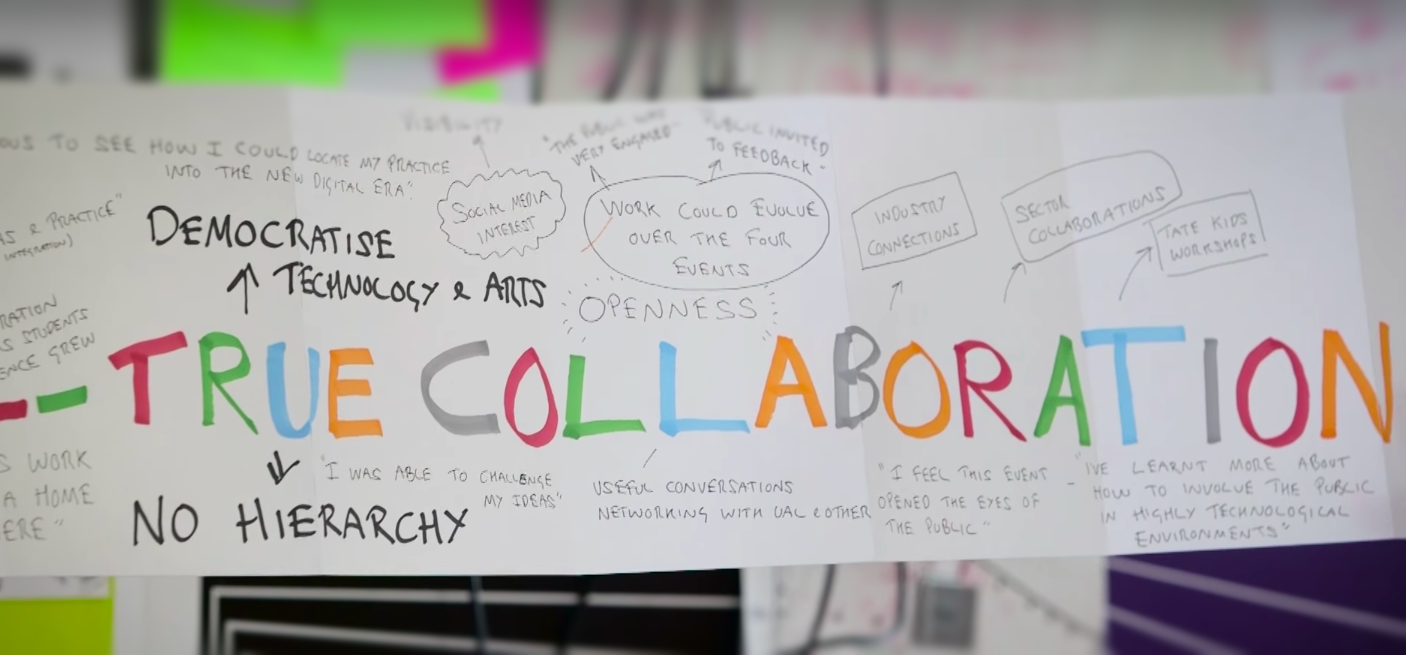 VISIBILITY
"THE PUBLIC WAS
VERY ENGAGED"
PUBLIC INVITED
TO FEEDBACK -
OUS TO SEE HOW I COULD LOCATE MY PRACTICE
INTO THE NEW DIGITAL ERA".
SOCIAL MEDIA
INTEREST
WORK COULD EVOLVE
OVER THE FOUR
EVENTS
INDUSTRY
CONNECTIONS
SECTOR
COLLABORATIONS
TATE KIDS
WORKSHOPS
AS & PRACTICE"
INTEGRATION)
DEMOCRATISE
TECHNOLOGY & ARTS
OPENNESS
RATION
S STUDENTS
ENCE GREW
-- TRUE COLLABORATION
S WORK
A HOME
ERE"
NO HIERARCHY
"I WAS ABLE TO CHALLENGE
MY IDEAS"
USEFUL CONVERSATIONS
NETWORKING WITH UAL & OTHER
"I FEEL THIS EVENT
OPENED THE EYES OF
THE PUBLIC"
"I'VE LEARNT MORE ABOUT
HOW TO INVOLVE THE PUBLIC
IN HIGHLY TECHNOLOGICAL
ENVIRONMENTS"